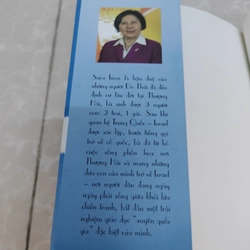 Sara Imas là hậu duệ của
những người Do Thái đã đến
định cư lâu đời tại Thượng
Hải, bà sinh được 3 người
con: 2 trai, 1 gái. Sau khi
quan hệ Trung Quốc – Israel
được xác lập, trước tiếng gọi
trở về cố quốc, bà đã từ bỏ
cuộc sống phồn hoa nơi
Thượng Hải và mang những
đứa con của mình trở về Israel
– nơi người dân đang ngày
ngày phải sống giữa khói lửa
chiến tranh, bắt đầu một trải
nghiệm giáo dục "xuyên quốc
gia" đặc biệt của mình.